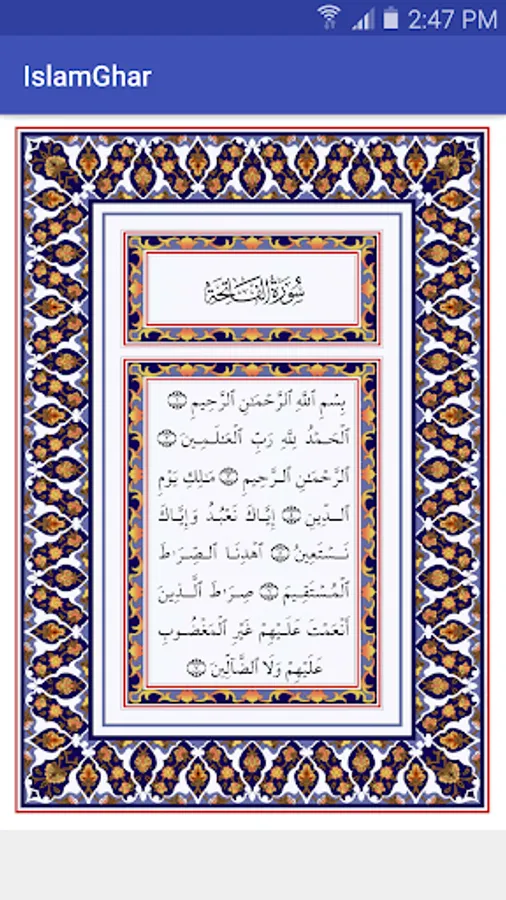 2:47 PM
IslamGhar
سُورَةُ الفَاتِحَةِ
بِسْمِ ٱللَّهِ ٱلرَّحْمَـٰنِ ٱلرَّحِيمِ ١
ٱلْحَمْدُ لِلَّهِ رَبِّ ٱلْعَـٰلَمِينَ ٢
ٱلرَّحْمَـٰنِ ٱلرَّحِيمِ ٣ مَـٰلِكِ يَوْمِ
ٱلدِّينِ ٤ إِيَّاكَ نَعْبُدُ وَإِيَّاكَ
نَسْتَعِينُ ٥ ٱهْدِنَا ٱلصِّرَٰطَ
ٱلْمُسْتَقِيمَ ٦ صِرَٰطَ ٱلَّذِينَ
أَنْعَمْتَ عَلَيْهِمْ غَيْرِ ٱلْمَغْضُوبِ
عَلَيْهِمْ وَلَا ٱلضَّآلِّينَ ٧